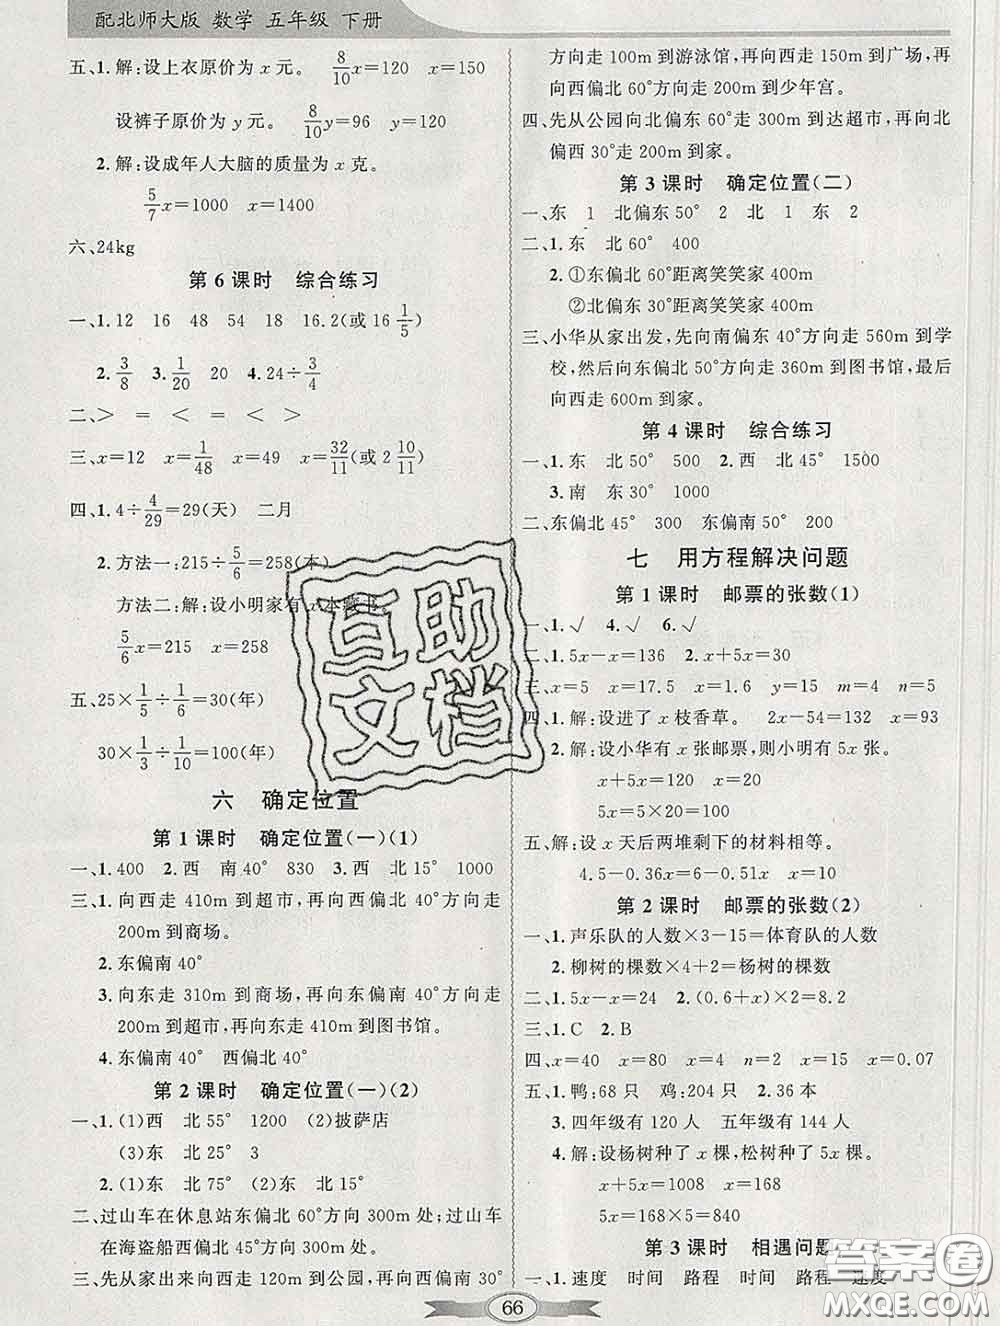 配北师大版 数学 五年级 下册
五、1. 解:设上衣原价为 x 元。 8/10x=120 x=150
设裤子原价为 y 元。 8/10y=96 y=120
2. 解:设成年人大脑的质量为 x 克。
5/7x=1000 x=1400
六、24kg
第 6 课时 综合练习
一、1. 12 16 48 54 18 16.2(或 16 1/5)
2. 3/8 3. 1/20 20 4. 24÷3/4
二、> = < = < >
三、x=12 x=1/48 x=49 x=32/11(或 2 10/11)
四、1. 4÷4/29=29(天) 二月
2. 方法一:215÷5/6=258(本)
方法二:解:设小明家有 x 本藏书。
5/6x=215 x=258
五、25×1/5÷1/6=30(年)
30×1/3÷1/10=100(年)
六 确定位置
第 1 课时 确定位置(一)(1)
一、1. 400 2. 西 南 40° 830 3. 西 北 15° 1000
三、1. 向西走 410m 到超市,再向西偏北 40°方向走
200m 到商场。
2. 东偏南 40°
3. 向东走 310m 到商场,再向东偏南 40°方向走
200m 到超市,再向东走 410m 到图书馆。
4. 东偏南 40° 西偏北 40°
第 2 课时 确定位置(一)(2)
一、1. (1)西 北 55° 1200 (2)披萨店
(3)东 北 25° 3
2. (1)东 北 75° (2)东 北 15°
二、过山车在休息站东偏北 60°方向 300m 处;过山车
在海盗船西偏北 45°方向 300m 处。
三、先从家出来向西走 120m 到公园,再向西偏南 30°
方向走 100m 到游泳馆,再向西走 150m 到广场,再
向西偏北 60°方向走 200m 到少年宫。
四、先从公园向北偏东 60°走 300m 到达超市,再向北
偏西 30°走 200m 到家。
第 3 课时 确定位置(二)
一、东 1 北偏东 50° 2 北 1 东 2
二、1. 东 北 60° 400
2. ①东偏北 60°距离笑笑家 400m
②北偏东 30°距离笑笑家 400m
三、小华从家出发,先向南偏东 40°方向走 560m 到学
校,然后向东偏北 50°方向走 360m 到图书馆,最后
向西走 600m 到家。
第 4 课时 综合练习
一、1. 东 北 50° 500 2. 西 北 45° 1500
3. 南 东 30° 1000
二、东偏北 45° 300 东偏南 50° 200
七 用方程解决问题
第 1 课时 邮票的张数(1)
一、1. √ 4. √ 6. √
二、1. 5x−x=136 2. x+5x=30
三、x=5 x=17.5 x=1.6 y=7 m=4 n=5
四、1. 解:设进了 x 枝香草。 2x−54=132 x=93
2. 解:设小华有 x 张邮票,则小明有 5x 张。
x+5x=120 x=20
5x=5×20=100
五、解:设 x 天后两堆剩下的材料相等。
4.5−0.36x=6−0.51x x=10
第 2 课时 邮票的张数(2)
一、1. 声乐队的人数×3−15=体育队的人数
2. 柳树的棵数×4+2=杨树的棵数
二、1. 5x−x=24 2. (0.6+x)×2=8.2
三、1. C 2. B
四、x=40 x=80 x=4 n=2 x=15 x=0.07
五、1. 鸭:68 只 鸡:204 只 2. 36 本
3. 四年级有 120 人 五年级有 144 人
4. 解:设杨树种了 x 棵,松树种了 5x 棵。
x+5x=1008 x=168
5x=168×5=840
第 3 课时 相遇问题
一、1. 速度 时间 路程 时间 路程 速度
66
互助文档
答案圈
MXQE.COM